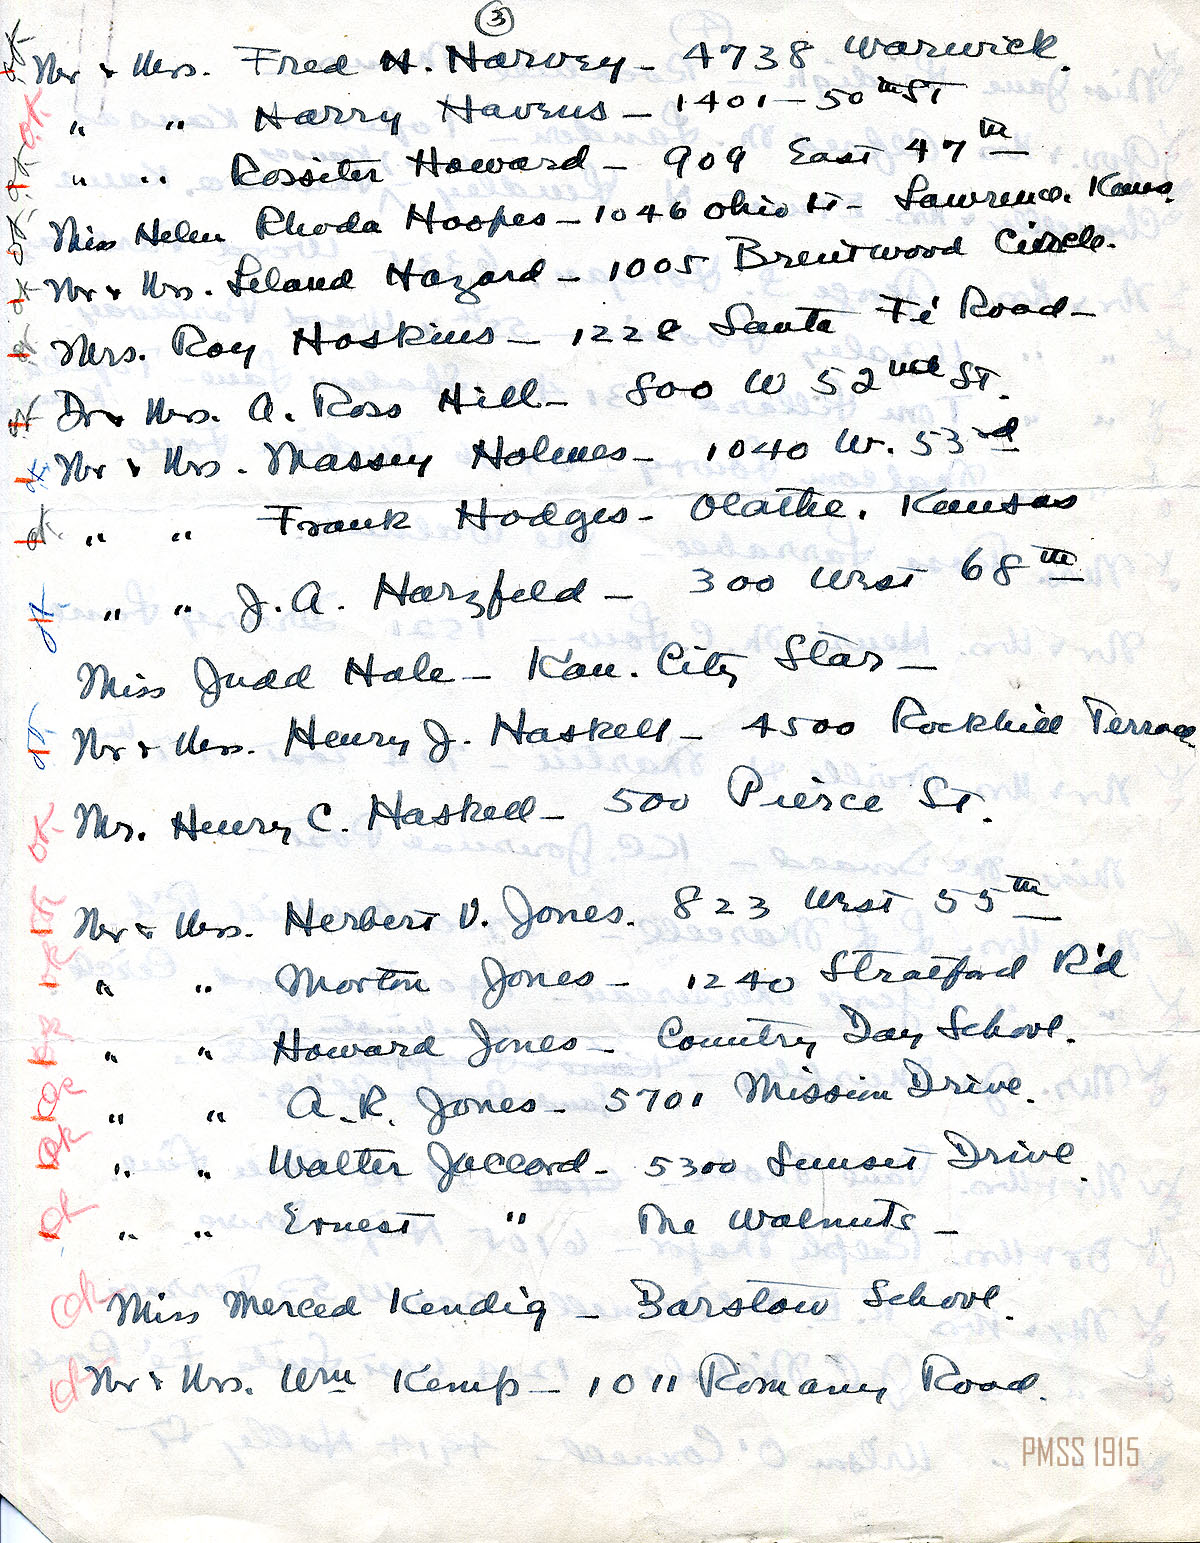 ③
OK Mr & Mrs. Fred H. Harvey - 4738 Warwick.
OK " " Harry Havens - 1401 - 50th St
OK " " Rossiter Howard - 909 East 47th
OK Miss Helen Rhoda Hoopes - 1046 Ohio St - Lawrence. Kans.
OK Mr & Mrs. Leland Hazard - 1005 Brentwood Circle.
OK Mrs. Roy Hoskins - 1228 Santa Fé Road -
OK Dr & Mrs. A. Ross Hill - 800 W 52nd St.
OK Mr & Mrs. Massey Holmes - 1040 W. 53rd
OK " " Frank Hodges - Olathe. Kansas
OK " " J. A. Harzfeld - 300 West 68th
Miss Judd Hale - Kan. City Star -
OK Mr & Mrs. Henry J. Haskell - 4500 Rockhill Terrace.
OK Mr. Henry C. Haskell - 500 Pierce St.
OK Mr & Mrs. Herbert V. Jones. 823 West 55th
OK " " Morton Jones - 1240 Stratford R'd
OK " " Howard Jones - Country Day School.
OK " " A. R. Jones - 5701 Mission Drive.
OK " " Walter Jaccard - 5300 Sunset Drive.
OK " " Ernest " The Walnuts -
OK Miss Merced Kendig - Barstow School.
OK Mr & Mrs. Wm Kemp - 1011 Romany Road.
PMSS 1915